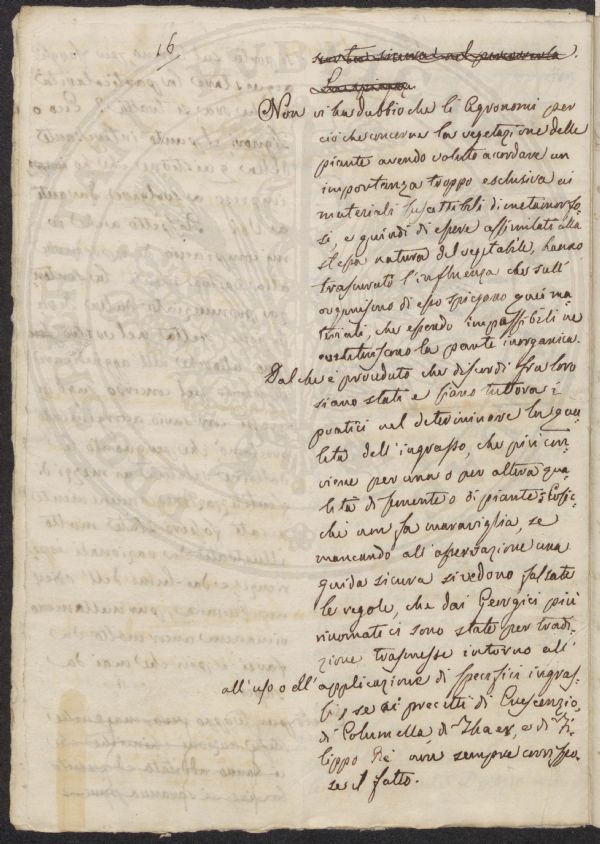 16
Non vi ha dubbio che li Agronomi per
ciò che concerne la vegetazione delle
piante avendo voluto acordare un
importanza troppo esclusiva ai
materiali suscettibili di metamorfo-
si, e quindi di essere assimilati alla
stessa natura del vegetabile, hanno
trascurato l'influenza che sull'
organismo di esso spiegano quei ma-
teriali, che essendo impassibili ne
costituiscono la parte inorganica.
Dal che è proceduto che discordi fra loro
siano stati e siano tuttora i
pratici nel determinare la qua-
lità dell'ingrasso, che più con-
viene per una o per altera qua-
lità di semente o di piante:
chi non fa maraviglia, se
mancando all'asserzione una
guida sicura si vedono falsate
le regole, che dai Georgici più
rinomati ci sono state per tradi-
zione trasmesse intorno all'
all'uso o all'applicazione di specifici ingras-
si, se ai precetti di Crescenzio
di Columella di Thaer, e di Fi-
lippo Re non sempre corrispo-
se il fatto.